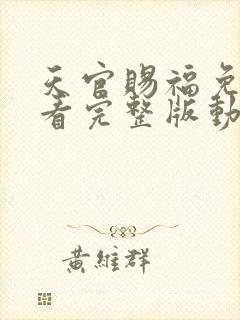 天官賜福免
看完整版動
黃維群